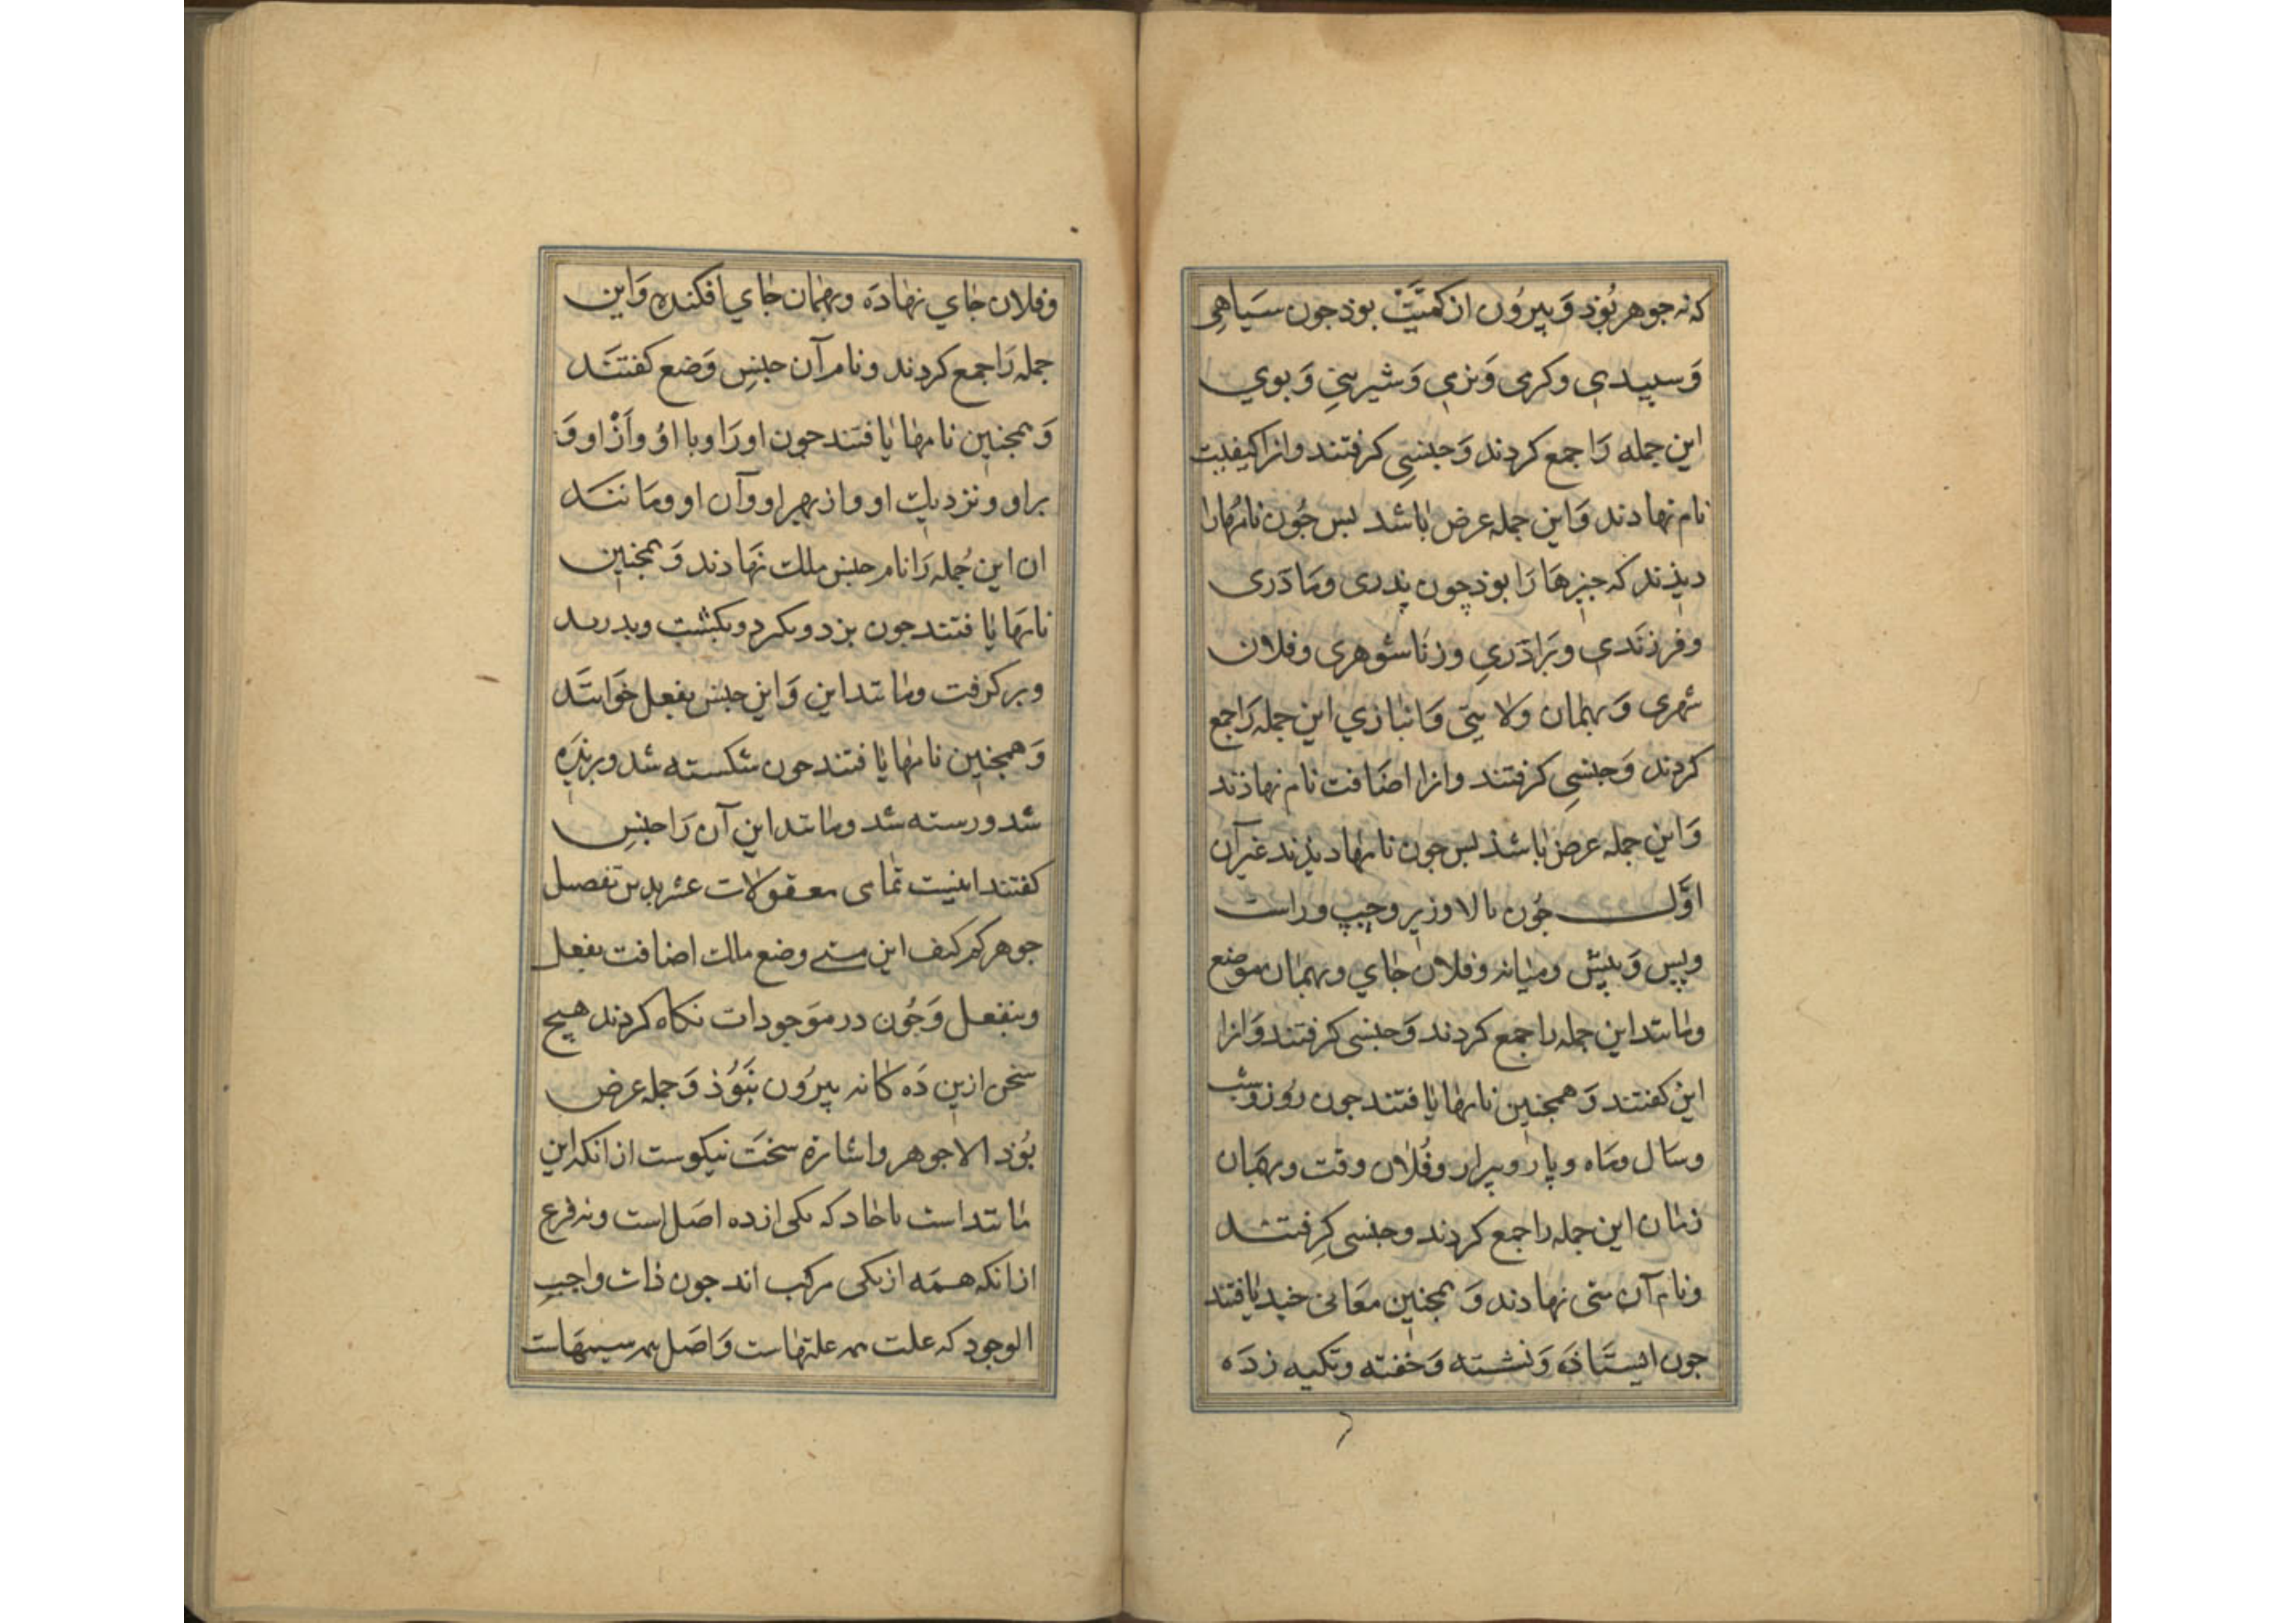 که نه جوهر بُوَذ وَ بیرُون از کمیَّتْ بوذ جون سَیاهی
وَ سپیدی وکرمی وَ نرمی وَ شیرینی وَ بوی
این جمله رَا جمع کردند وَ جنسی کرفتند وانرا کیفیت
نام نهادند وَاین جمله عرض باشد بس جُون نامهارا
دیذند که جیزهَا رَا بوذ چون پدری ومَادَری
وفرزَندی وبَرَادَری وزنَاشوهری وفلان
شهری وَ بهمان ولایتی وَانبازی این جمله رَاجمع
کردند وَ جنسی کرفتند وانرا اضَافت نام نهاذند
وَاین جمله عرض باشذ بس جون نامها دیذند غیر آن
اوَّل جُون بالا وزیر وچپ وراست
وپس وَ پیش ومیانه وفلان جای وبهمان موضع
ومانند این جمله را جمع کردند وَ جنسی کرفتند وَانرا
این کفتند وَ همجنین نامها یافتند جون روُز وشب
وسَال ومَاه وپار وپیرار وفُلان وقت وبهمَان
زمان این جمله را جمع کردند وجنسی کرفتند
ونام آن متی نهادند وَ همجنین معَانی یافتند
جون ایستَاذَه وَ نشسته وَ خفته وتکیه زدَه
وفلان جای نهادَه وبهمان جای افکنده وَاین
جمله رَا جمع کردند ونام آن جنسِ وَضع کفتند
وَ همجنین نامها یافتند جون اورَا وبا اوُ واَزْ او وَ
براو ونزدیك او واز بهر او وآن او ومَانند
ان این جُمله رَا نام جنس ملك نهَادند وَ همجنین
نامهَا یافتند جون بزد وبکرد وبکشت وبدرید
وبرکرفت ومانند این وَاین جنس یفعل خوَانند
وَ همجنین نامها یافتند جون شکسته شد وبریذه
شد ورسته شد ومانند این آن رَا جنسِ
کفتند اینیت تمامی معقولات عشر بدین تفصیل
جوهر کم کیف این متی وضع ملك اضافت یفعل
وینفعل وَ جُون در موَجودات نکاه کردند هیچ
سخن ازین دَه کانه بیرُون نَبَوُذ وَ جمله عرض
بُوذ الا جوهر واشارة سخت نیکوست از انکه این
مانند است باحاد که یکی از ده اصَل است ونه فرع
از انکه همَه از یکی مرکب اند جون ذات واجبِ
الوجود که علت همه علتهاست وَاصَل همه سببهَاست